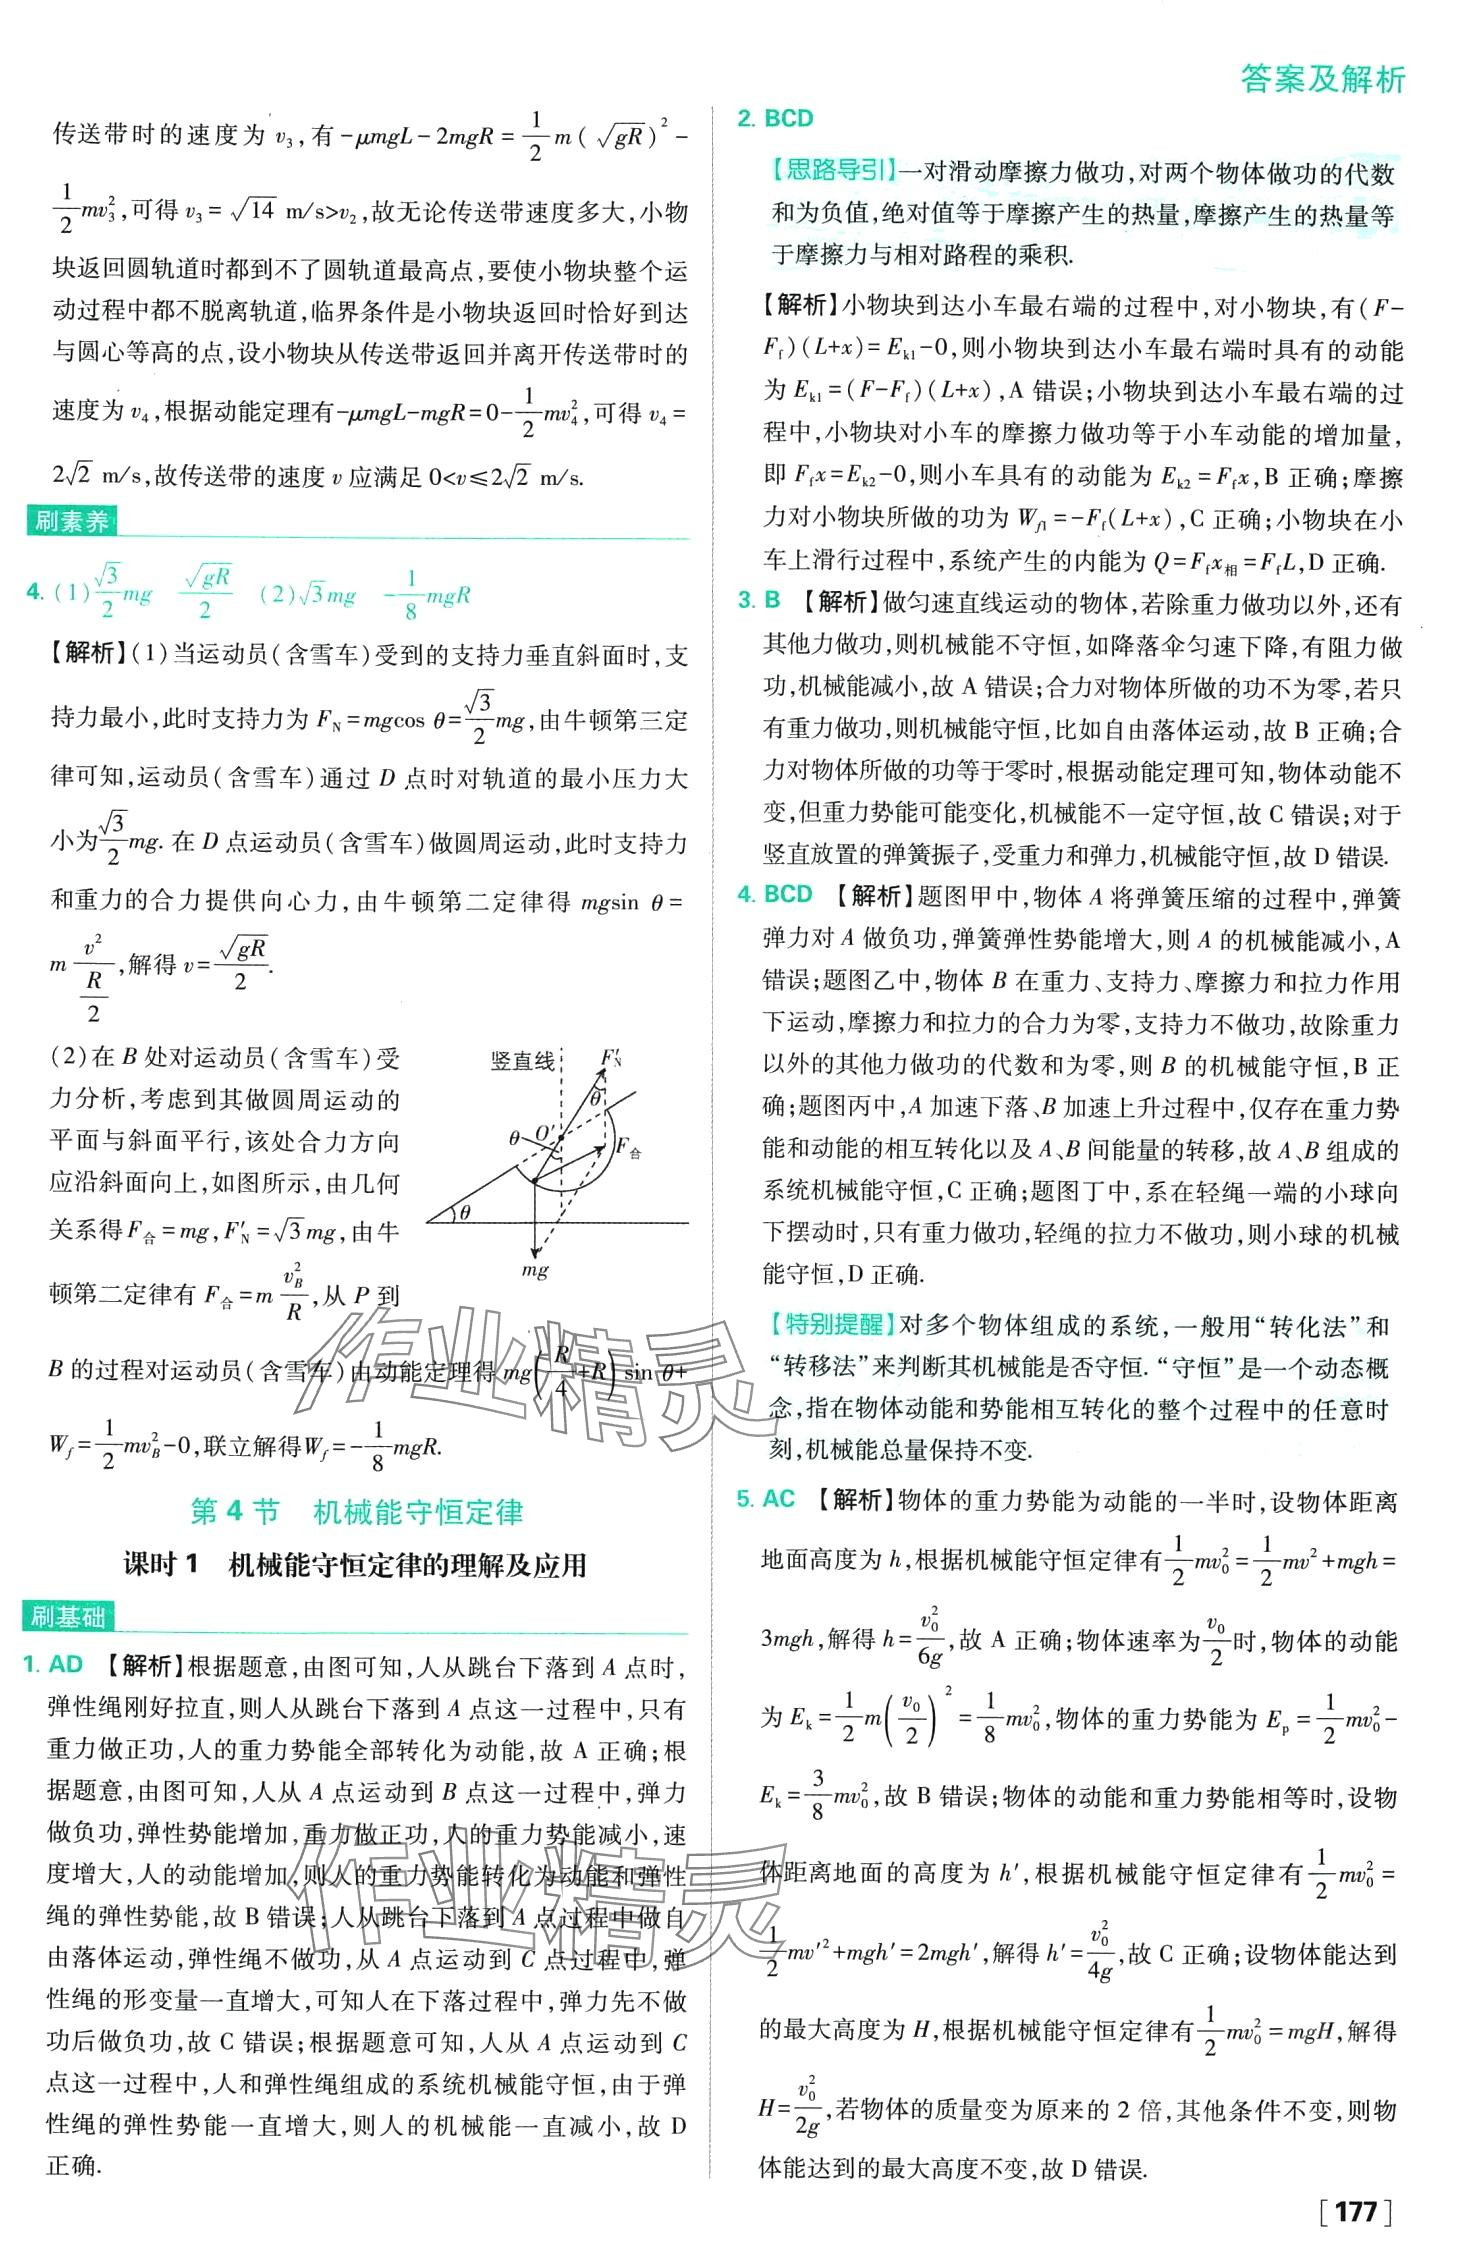 答案及解析
传送带时的速度为 v₃,有 -μmgL-2mgR = 1/2 m(√gR)² -
1/2 mv₃²,可得 v₃ = √14 m/s>v₂,故无论传送带速度多大,小物
块返回圆轨道时都到不了圆轨道最高点,要使小物块整个运
动过程中都不脱离轨道,临界条件是小物块返回时恰好到达
与圆心等高的点,设小物块从传送带返回并离开传送带时的
速度为 v₄,根据动能定理有-μmgL-mgR=0-1/2 mv₄²,可得 v₄ =
2√2 m/s,故传送带的速度 v 应满足 0<v≤2√2 m/s.
刷素养
4. (1) √3/2 mg √gR/2 (2)√3 mg -1/8 mgR
【解析】(1)当运动员(含雪车)受到的支持力垂直斜面时,支
持力最小,此时支持力为 F_N = mgcos θ=√3/2 mg,由牛顿第三定
律可知,运动员(含雪车)通过 D 点时对轨道的最小压力大
小为√3/2 mg. 在 D 点运动员(含雪车)做圆周运动,此时支持力
和重力的合力提供向心力,由牛顿第二定律得 mgsin θ =
m v²/(R/2),解得 v=√gR/2.
(2)在 B 处对运动员(含雪车)受
力分析,考虑到其做圆周运动的
平面与斜面平行,该处合力方向
应沿斜面向上,如图所示,由几何
关系得 F合 = mg, F′_N = √3 mg,由牛
顿第二定律有 F合 = m v_B²/R,从 P 到
竖直线 F′_N
θ
θ O′
F合
θ
mg
B 的过程对运动员(含雪车)由动能定理得 mg(R/4+R) sin θ+
W_f = 1/2 mv_B²-0,联立解得W_f = -1/8 mgR.
第 4 节 机械能守恒定律
课时 1 机械能守恒定律的理解及应用
刷基础
1. AD 【解析】根据题意,由图可知,人从跳台下落到 A 点时,
弹性绳刚好拉直,则人从跳台下落到 A 点这一过程中,只有
重力做正功,人的重力势能全部转化为动能,故 A 正确;根
据题意,由图可知,人从 A 点运动到 B 点这一过程中,弹力
做负功,弹性势能增加,重力做正功,人的重力势能减小,速
度增大,人的动能增加,则人的重力势能转化为动能和弹性
绳的弹性势能,故 B 错误;人从跳台下落到 A 点过程中做自
由落体运动,弹性绳不做功,从 A 点运动到 C 点过程中,弹
性绳的形变量一直增大,可知人在下落过程中,弹力先不做
功后做负功,故 C 错误;根据题意可知,人从 A 点运动到 C
点这一过程中,人和弹性绳组成的系统机械能守恒,由于弹
性绳的弹性势能一直增大,则人的机械能一直减小,故 D
正确.
2. BCD
【思路导引】一对滑动摩擦力做功,对两个物体做功的代数
和为负值,绝对值等于摩擦产生的热量,摩擦产生的热量等
于摩擦力与相对路程的乘积.
【解析】小物块到达小车最右端的过程中,对小物块,有(F-
F_f)(L+x)= E_k1-0,则小物块到达小车最右端时具有的动能
为 E_k1=(F-F_f)(L+x),A 错误;小物块到达小车最右端的过
程中,小物块对小车的摩擦力做功等于小车动能的增加量,
即 F_f x=E_k2-0,则小车具有的动能为 E_k2 = F_f x,B 正确;摩擦
力对小物块所做的功为 W_f1=-F_f(L+x),C 正确;小物块在小
车上滑行过程中,系统产生的内能为 Q=F_f x相=F_f L,D 正确.
3. B 【解析】做匀速直线运动的物体,若除重力做功以外,还有
其他力做功,则机械能不守恒,如降落伞匀速下降,有阻力做
功,机械能减小,故 A 错误;合力对物体所做的功不为零,若只
有重力做功,则机械能守恒,比如自由落体运动,故 B 正确;合
力对物体所做的功等于零时,根据动能定理可知,物体动能不
变,但重力势能可能变化,机械能不一定守恒,故 C 错误;对于
竖直放置的弹簧振子,受重力和弹力,机械能守恒,故 D 错误.
4. BCD 【解析】题图甲中,物体 A 将弹簧压缩的过程中,弹簧
弹力对 A 做负功,弹簧弹性势能增大,则 A 的机械能减小,A
错误;题图乙中,物体 B 在重力、支持力、摩擦力和拉力作用
下运动,摩擦力和拉力的合力为零,支持力不做功,故除重力
以外的其他力做功的代数和为零,则 B 的机械能守恒,B 正
确;题图丙中,A 加速下落、B 加速上升过程中,仅存在重力势
能和动能的相互转化以及 A、B 间能量的转移,故 A、B 组成的
系统机械能守恒,C 正确;题图丁中,系在轻绳一端的小球向
下摆动时,只有重力做功,轻绳的拉力不做功,则小球的机械
能守恒,D 正确.
【特别提醒】对多个物体组成的系统,一般用“转化法”和
“转移法”来判断其机械能是否守恒. “守恒”是一个动态概
念,指在物体动能和势能相互转化的整个过程中的任意时
刻,机械能总量保持不变.
5. AC 【解析】物体的重力势能为动能的一半时,设物体距离
地面高度为 h,根据机械能守恒定律有 1/2 mv₀² = 1/2 mv² +mgh =
3mgh,解得 h= v₀²/6g,故 A 正确;物体速率为 v₀/2 时,物体的动能
为 E_k = 1/2 m(v₀/2)² = 1/8 mv₀²,物体的重力势能为 E_p = 1/2 mv₀² -
E_k = 3/8 mv₀²,故 B 错误;物体的动能和重力势能相等时,设物
体距离地面的高度为 h′,根据机械能守恒定律有 1/2 mv₀² =
1/2 mv′²+mgh′=2mgh′,解得 h′= v₀²/4g,故 C 正确;设物体能达到
的最大高度为 H,根据机械能守恒定律有 1/2 mv₀² =mgH,解得
H= v₀²/2g,若物体的质量变为原来的 2 倍,其他条件不变,则物
体能达到的最大高度不变,故 D 错误.
作业精灵
作业精灵
[177]